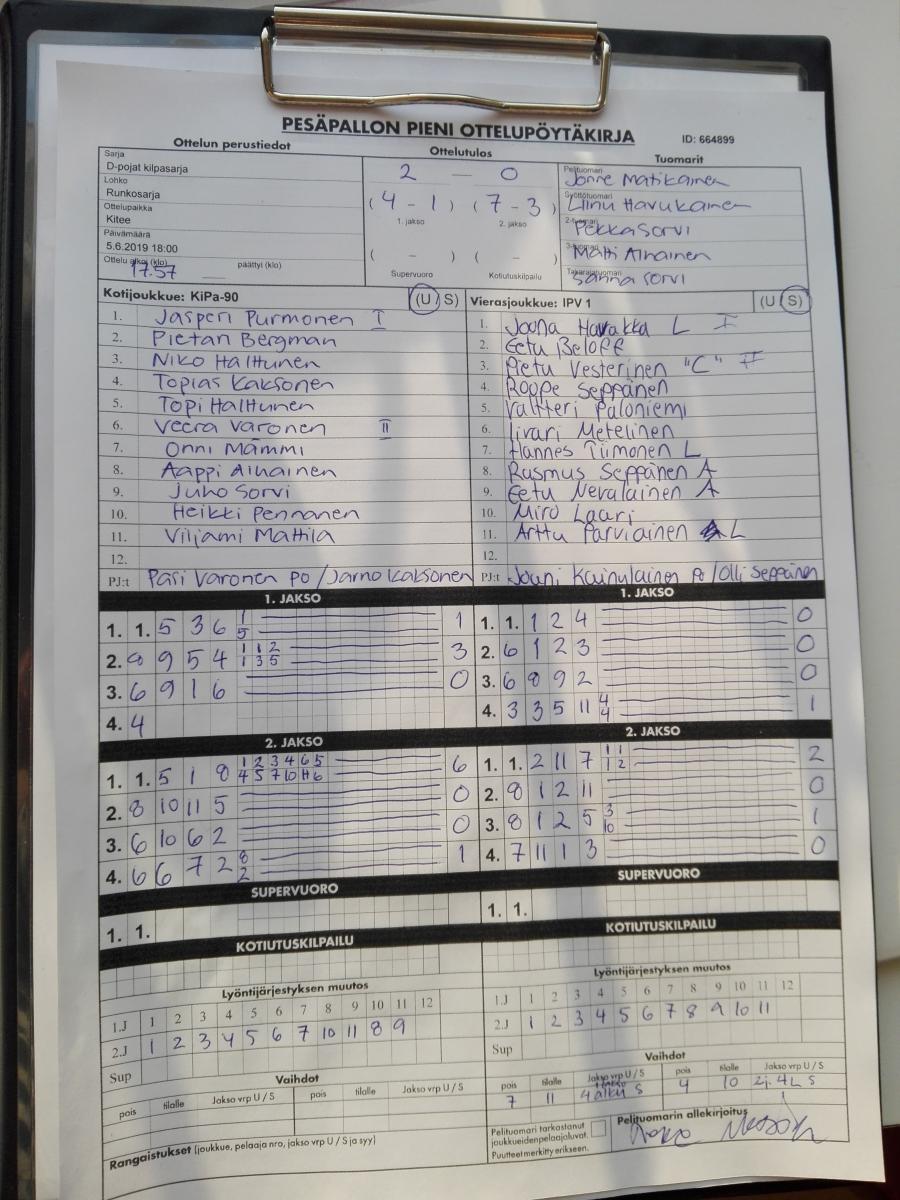 PESÄPALLON PIENI OTTELUPÖYTÄKIRJA ID: 664899
Ottelun perustiedot Ottelutulos Tuomarit
Sarja
D-pojat kilpasarja
Lohko
Runkosarja
Ottelupaikka
Kitee
Päivämäärä
5.6.2019 18:00
Ottelu alkoi (klo) 17.57 päättyi (klo)
2 — 0
(4 - 1) (7 - 3)
1. jakso 2. jakso
( - ) ( - )
Supervuoro Kotiutuskilpailu
Pelituomari Jonne Matikainen
Syöttötuomari Liinu Havukainen
2-tuomari Pekka Sorvi
3-tuomari Matti Aihainen
Takarajatuomari Sanna Sorvi
Kotijoukkue: KiPa-90 (U S)
1. Jasperi Purmonen I
2. Pietari Bergman
3. Niko Halttunen
4. Topias Kaksonen
5. Topi Halttunen
6. Veera Varonen II
7. Onni Mämmi
8. Aappi Aihainen
9. Juho Sorvi
10. Heikki Pennanen
11. Viljami Mattila
12.
PJ:t Pasi Varonen PO / Jarno Kaksonen
Vierasjoukkue: IPV 1 (U S)
1. Joona Harakka L I
2. Eetu Beloff
3. Pietu Vesterinen "C" II
4. Roope Seppänen
5. Valtteri Paloniemi
6. Iivari Metelinen
7. Hannes Tiimonen L
8. Rasmus Seppänen A
9. Eetu Nevalainen A
10. Miro Laari
11. Arttu Parviainen L
12.
PJ:t Jouni Kainulainen PO / Olli Seppänen
1. JAKSO
1. 1. 5 3 6 1/5 1
2. 8 9 5 4 1/1 1/3 2/5 3
3. 6 9 1 6 0
4. 4
1. JAKSO
1. 1. 1 2 4 0
2. 6 1 2 3 0
3. 6 8 9 2 0
4. 3 3 5 11 4/4 1
2. JAKSO
1. 1. 5 1 8 1/4 2/5 3/7 4/10 6/11 5/6 6
2. 8 10 11 5 0
3. 6 10 6 2 0
4. 6 6 7 2 8/2 1
2. JAKSO
1. 1. 2 11 7 1/1 1/2 2
2. 8 1 2 11 0
3. 8 1 2 5 3/10 1
4. 7 11 1 3 0
SUPERVUORO
1. 1.
SUPERVUORO
1. 1.
KOTIUTUSKILPAILU
KOTIUTUSKILPAILU
Lyöntijärjestyksen muutos
1.J 1 2 3 4 5 6 7 8 9 10 11 12
2.J 1 2 3 4 5 6 7 10 11 8 9
Sup
Lyöntijärjestyksen muutos
1.J 1 2 3 4 5 6 7 8 9 10 11 12
2.J 1 2 3 4 5 6 7 8 9 10 11
Sup
Vaihdot
pois tilalle Jakso vrp U / S pois tilalle Jakso vrp U / S
Vaihdot
pois tilalle Jakso vrp U / S pois tilalle Jakso vrp U / S
7 11 4 alku S 4 10 2j. 4L S
Rangaistukset (joukkue, pelaaja nro, jakso vrp U / S ja syy)
Pelituomari tarkastanut
joukkueidenpelaajaluvat.
Puutteet merkitty erikseen.
Pelituomarin allekirjoitus